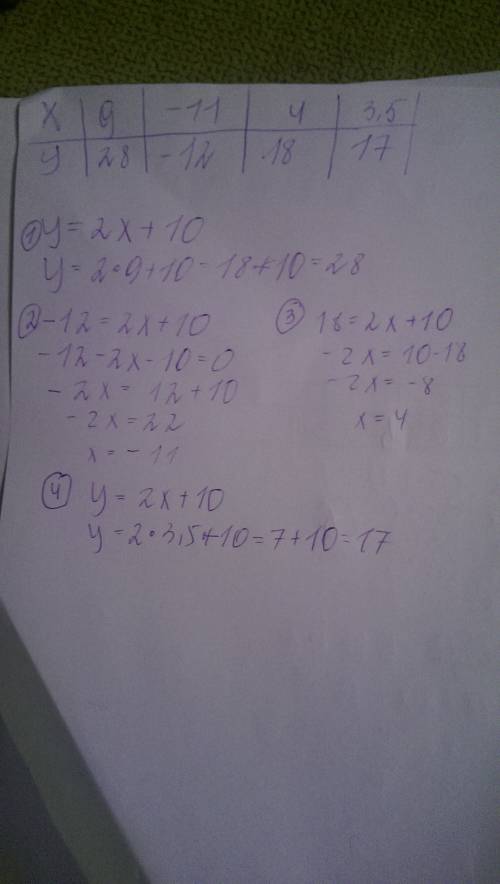 x | 9 | -11 | 4 | 3,5
y | 28 | -12 | 18 | 17
① y = 2x + 10
y = 2·9+10 = 18+10 = 28
② -12 = 2x+10
-12-2x-10=0
-2x = 12+10
-2x = 22
x = -11
③ 18=2x+10
-2x = 10-18
-2x = -8
x = 4
④ y = 2x+10
y = 2·3,5+10 = 7+10 = 17